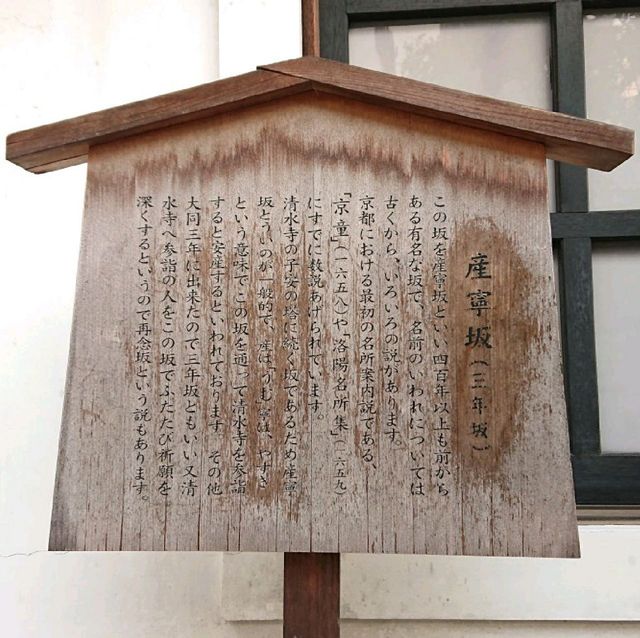 産寧坂(三年坂)
この坂を産寧坂といい四百年以上も前から
ある有名な坂で、名前のいわれについては
古くから、いろいろの説があります。
京都における最初の名所案内説である、
「京童」(一六五八)や「洛陽名所集」(一六五九)
にすでに数説あげられています。
清水寺の子安の塔に続く坂であるため産寧
坂というのが一般的で、産は「うむ」寧は、やすき
という意味でこの坂を通って清水寺を参詣
すると安産するといわれております。その他
大同三年に出来たので三年坂ともいい又清
水寺へ参詣の人をこの坂でふたたび祈願を
深くするというので再念坂という説もあります。